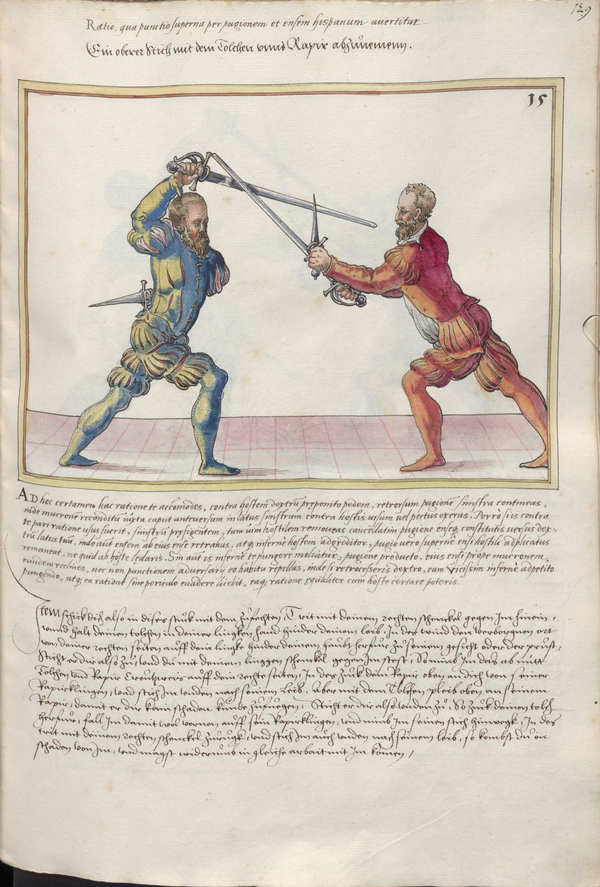 129
Ratio, qua punctio superna per pugionem et ensem hispanum auertitur
Ein oberer Stich mit dem Tolchen vnnd Rapir abzunemenn.
15
AD hoc certamen hac ratione te accomodes, contra hostem dextrum preponito pedem, retrorsum pugione sinistra contineas,
inde mucrone recondito iuxta caput auteuersum in latus sinistrum contra hostis uisum uel pectus operas. Porro si is contra
te pari ratione usus fuerit, sinistrum progrediens, tum uim hostilem remoueas cancellatim pugione enseq constitutis uersus dex-
trum latus tuum, inde aut ensem ab eius ense retrahas, atq infernè hostem adpetito, pugio uero supernè ensi hostili adplicatus
remaneat, ne quid ab hoste ledaris. Sin aut is infernè te pungere molitur, pugione producto, eius ensi propè mucronem,
eundem reclines, nec non punctionem aduersarij eo habitu repellas, inde si retrocesseris dextro, eum uicissim infernè adpetito
pungendo, atq ea ratione sine periculo euadere licebit, eaq ratione equaliter cum hoste certare poteris.
Item schick dich also in diser stuck mit dem zufechten, Trit mit deinem rechten schenckel gegen Im hinein,
vnnd halt deinen tolchen in deiner lingken hand hinder deinem leib, In des wind dein verborgnen ort
von deiner rechten seiten auff dein lingke hinder deinem haubt herfür zu seinem gesicht oder der prust,
Sticht er dir also zu, vnd die mit deinem linggen schenckel gegen Im steest, So nimb Im den ab mit
Tolchen vnd Rapir Creutzweis auff dein rechte seiten, In des zuck dein Rapir oben an dich von seiner
Rapierklingen, vnd stich Im vnden nach seinem Leib, Aber mit dem Tolchen pleib oben an seinem
Rapir, damit er dir kain schaden kunde zufuegen, Sticht er dir also vnden zu, So zuck deinen tolch
herfür, fall Im damit weit vornen auff sein Rapierklingen, vnd nimb Im seinen stich hinwegk, In des
trit mit deinem rechten schenckel zurugk, vnd stich Im auch vnden nach seinem leib, so kombst du on
schaden von Im, vnd magst widerumb in gleiche arbait mit Im komen,